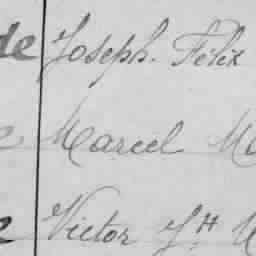 de Joseph. Félix
e Marcel M
e Victor J.H M